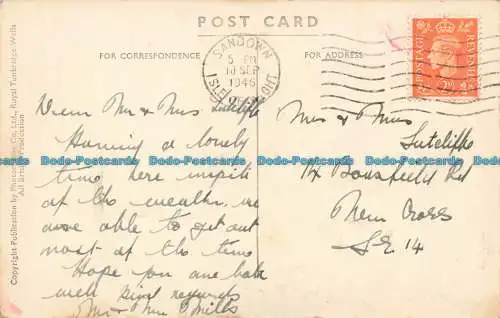 POST CARD
FOR CORRESPONDENCE
FOR ADDRESS
SANDOWN
5 PM
10 SEP
1946
ISLE OF WIGHT
POSTAGE REVENUE
Dear Mr & Mrs Sutcliffe
Having a lovely
time here inspite
of the weather, we
are able to get out
most of the time
Hope you are both
well kind regards
Mr & Mrs Mills
Mr & Mrs
Sutcliffe
Bousfield Rd
New Cross
S.E. 14
Copyright Publication by Photochrom Co. Ltd., Royal Tunbridge Wells
All British Production
Dodo-Postcards Dodo-Postcards Dodo-Postcards Dodo-Postcards Dodo-Postcards